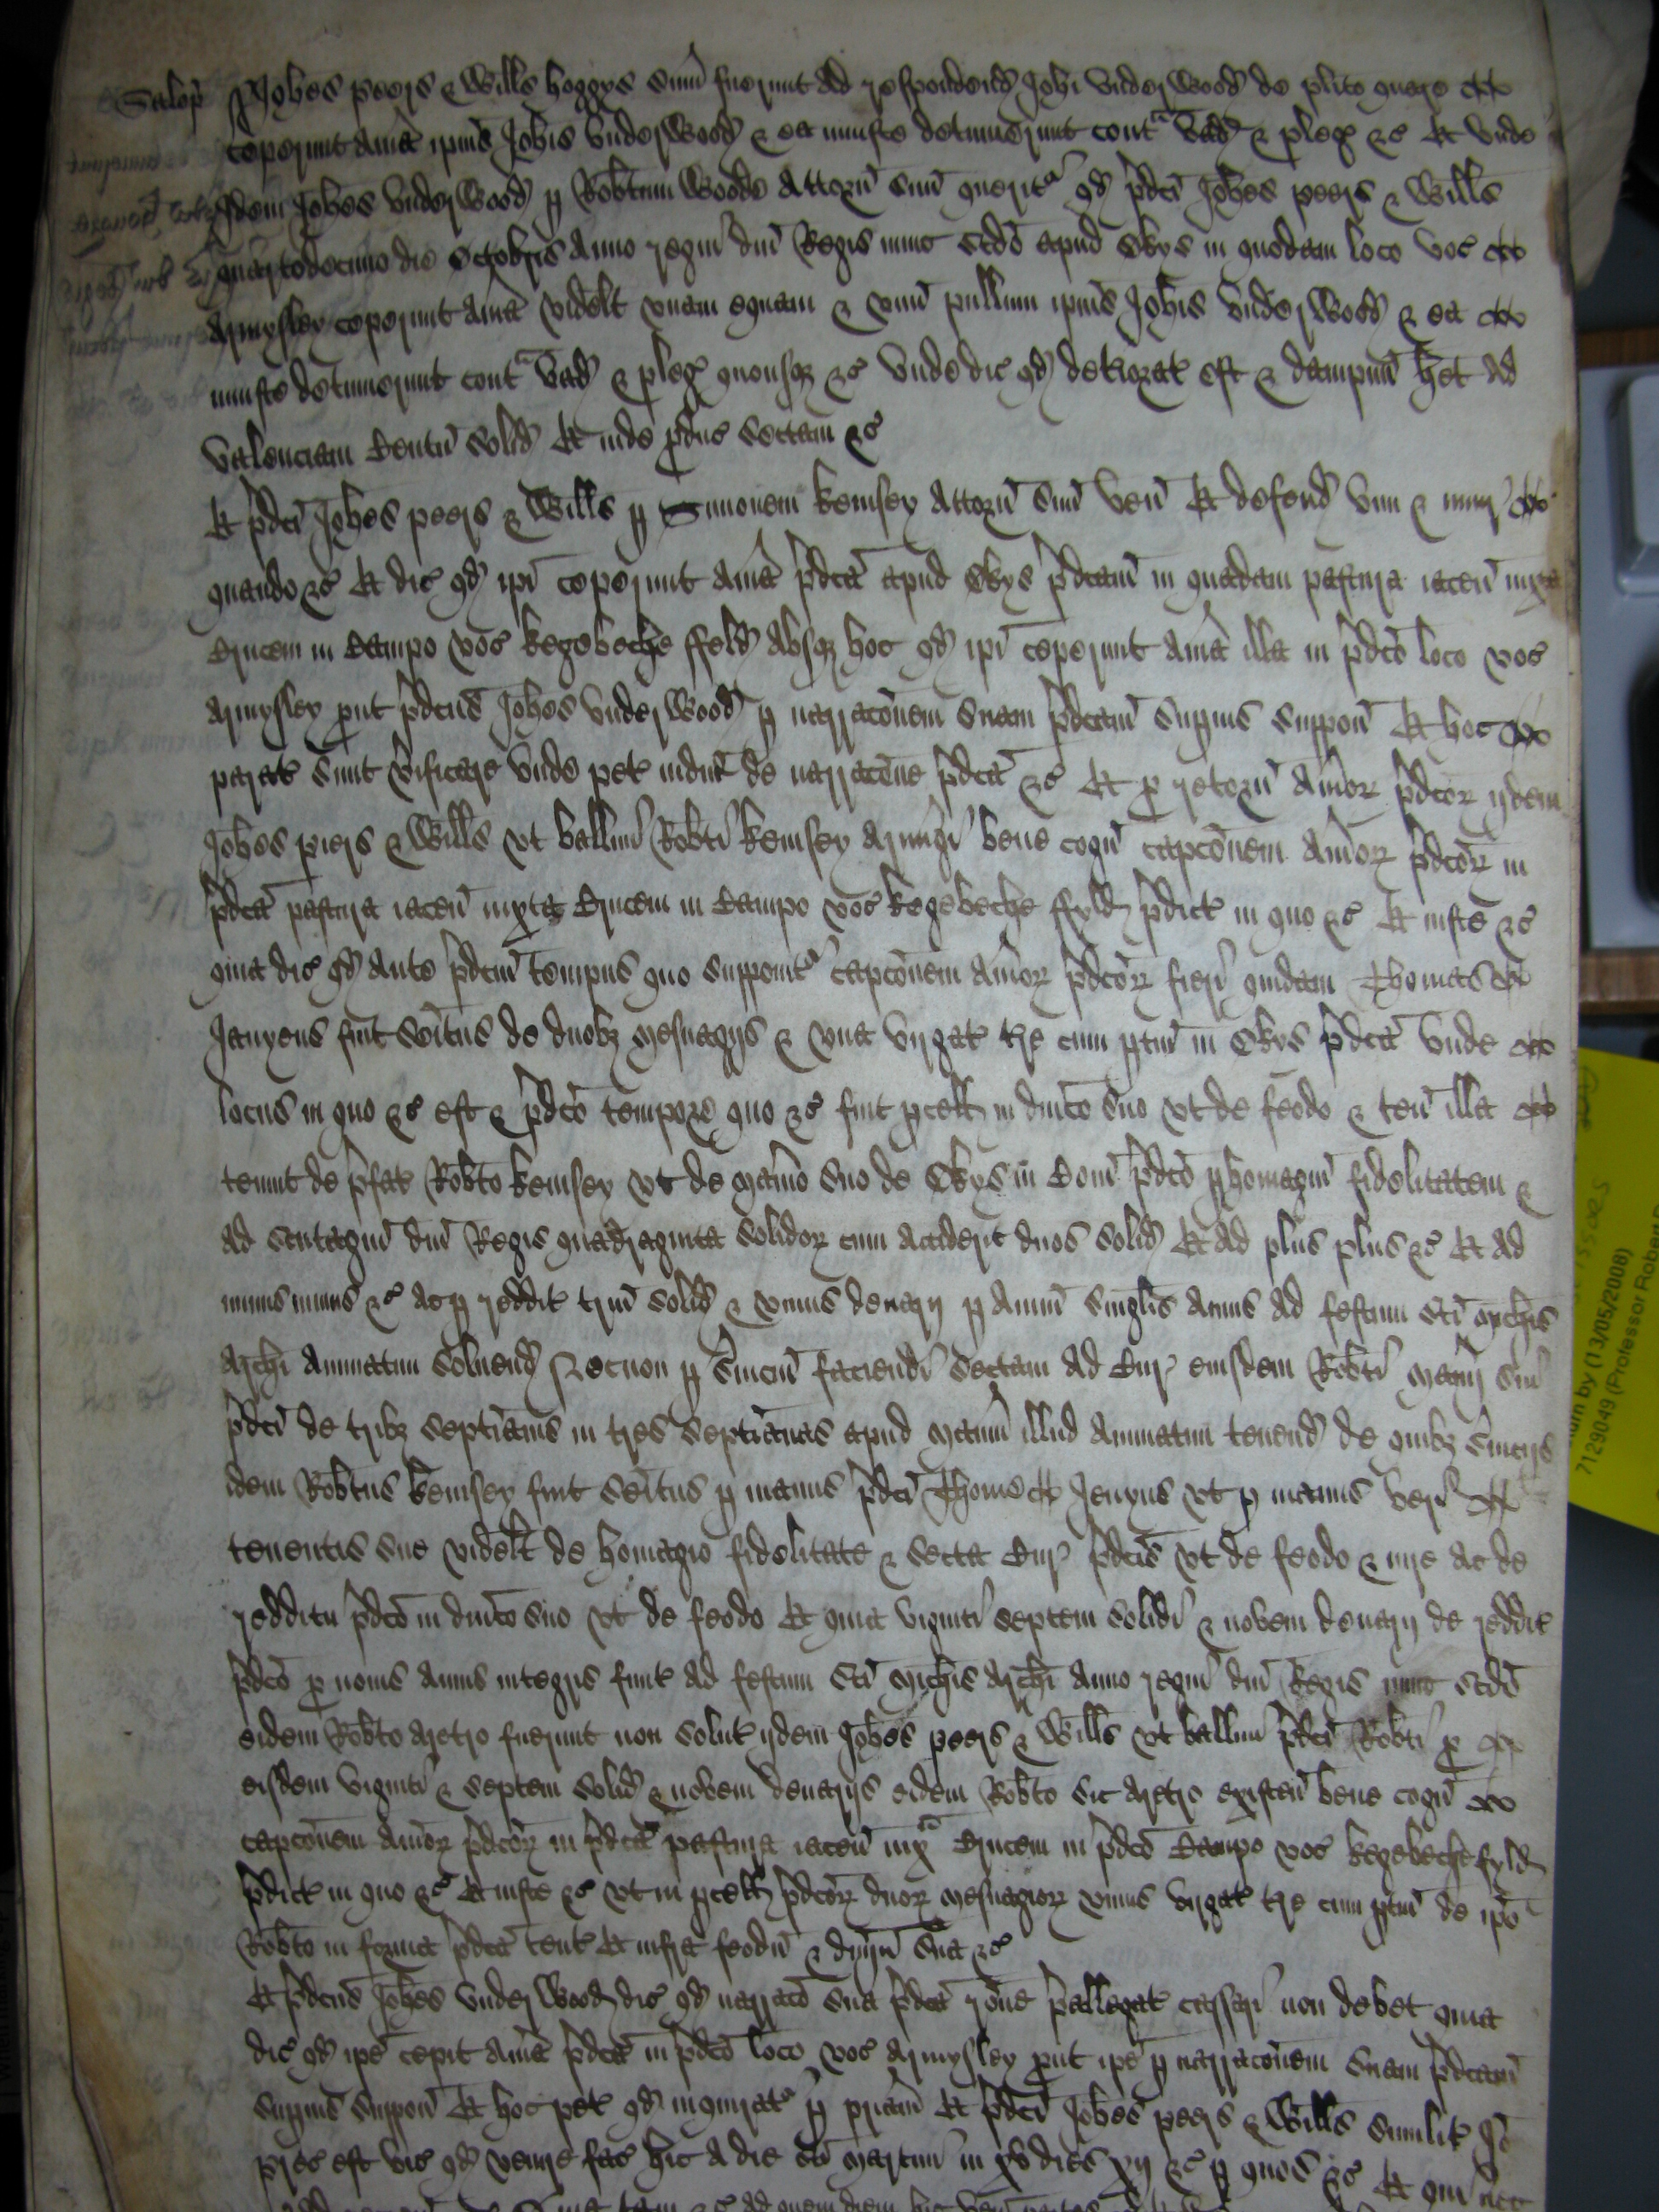 Salop Johes peers & Wills hoggys sum fuerunt ad respondend Johi Underwood de plito quare
ceperunt au'ia ip'ius Johis Underwood & ea iniuste detinuerunt cont' vad & pleg &c Et unde
idem Johes Underwood p Robtum Woode Attorn suu queritr qd pdci Johes peers & Wills
quartodecimo die Octobris anno regni dni Regis nunc scdo apud Okys in quodam loco voc
Armysley ceperunt au'ia videlt unam equam & unu pullum ipius Johis Underwood & ea
iniuste detinuerunt cont' vad & pleg quousq &c Unde dic qd deteriorat est & dampnu het ad
valenciam Centu solid Et inde pduc sectam &c
Et pdci Johes peers & Wills p Simonem kemsey Attorn suu ven Et defend vim & iniur
quando &c Et dic qd ipi ceperunt au'ia pdca apud Okys pdcam in quadam pastura iacen iuxta
Crucem in Campo voc kegebeche ffeld absq hoc qd ipi ceperunt au'ia illa in pdco loco voc
Armysley put pdcus Johes Underwood p narracoem suam pdcam supius suppon Et hoc
parat sunt vificare unde pet iudm de narracone pdca &c Et p retorn au'ior pdcor ijdem
Johes piers & Wills ut ballivi Robti kemsey Armigi bene cogn capconem au'ior pdcor in
pdca pastura iacen iuxta Crucem in Campo voc kegebeche ffyld pdict in quo &c Et iuste &c
quia dic qd ante pdcm tempus quo supponitr capconem au'ior pdcor fieri quidam Thomas
Jenyens fuit seitus de duobz mesuagijs & una virgat tre cum ptin in Okys pdca unde
locus in quo &c est & pdco tempore quo &c fuit pcell in dnico suo ut de feodo & ten illa
tenuit de pfat Robto kemsey ut de manio suo de Okys in Com pdco p homagiu fidelitatem &
ad scutagiu dni Regis quadraginta solidor cum acciderit duos solid Et ad plus plus &c Et ad
minus minus &c ac p reddit triu solid & unius denarij p annu singlis annis ad festum sci michis
archi annuatim solvend Necnon p sviciu faciendi sectam ad Cur eiusdem Robti manij sui
pdci de tribz septianis in tres septianas apud maniu illud annuatim tenend de quibz svicijs
idem Robtus kemsey fuit seitus p manus pdci Thome Jenyns ut p manus veri
tenentis sue videlt de homagio fidelitate & secta Cur pdcis ut de feodo & iure ac de
redditu pdco in dnico suo ut de feodo Et quia viginti septem solidi & novem denarij de reddit
pdco p novis annis integris finit ad festum sci michis archi anno regni dni Regis nunc scdo
eidem Robto aretro fuerunt non solut ijdem Johes peers & Wills ut ballivi pdci Robti p
eisdem viginti & septem solid & novem denarijs eidem Robto sic aretro existen bene cogn
capconem au'ior pdcor in pdca pastura iacen iuxa Crucem in pdco Campo voc kegebeche fyld
pdict in quo &c Et iuste &c ut in pcell pdcor duor mesuagior unius virgat tre cum ptin de ipo
Robto in forma pdca tent Et infra feodu & dniu sua &c
Et pdcus Johes Underwood dic qd narraco sua pdca rone pallegat cassari non debet quia
dic qd ipe cepit au'ia pdca in pdco loco voc Armysley put ipe p narraconem suam pdcam
supius suppon Et hoc pet qd inquiratr p priam Et pdci Johes peers & Wills similit Io
prec est vic qd venire fac hic a die sci martini in xv dies xij &c p quos &c Et qui nec